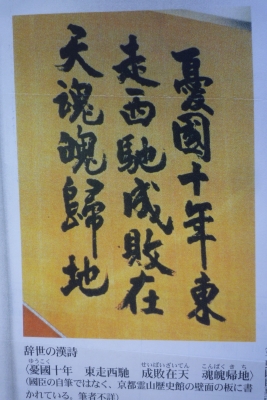 憂國十年東
走西馳成敗在
天魂魄歸地
辞世の漢詩
ゆうこく せいばいざいてん こんぱくきち
(憂國十年 東走西馳 成敗在天 魂魄帰地)
(國臣の自筆ではなく、京都霊山歴史館の壁面の板に書
かれている。筆者不詳)